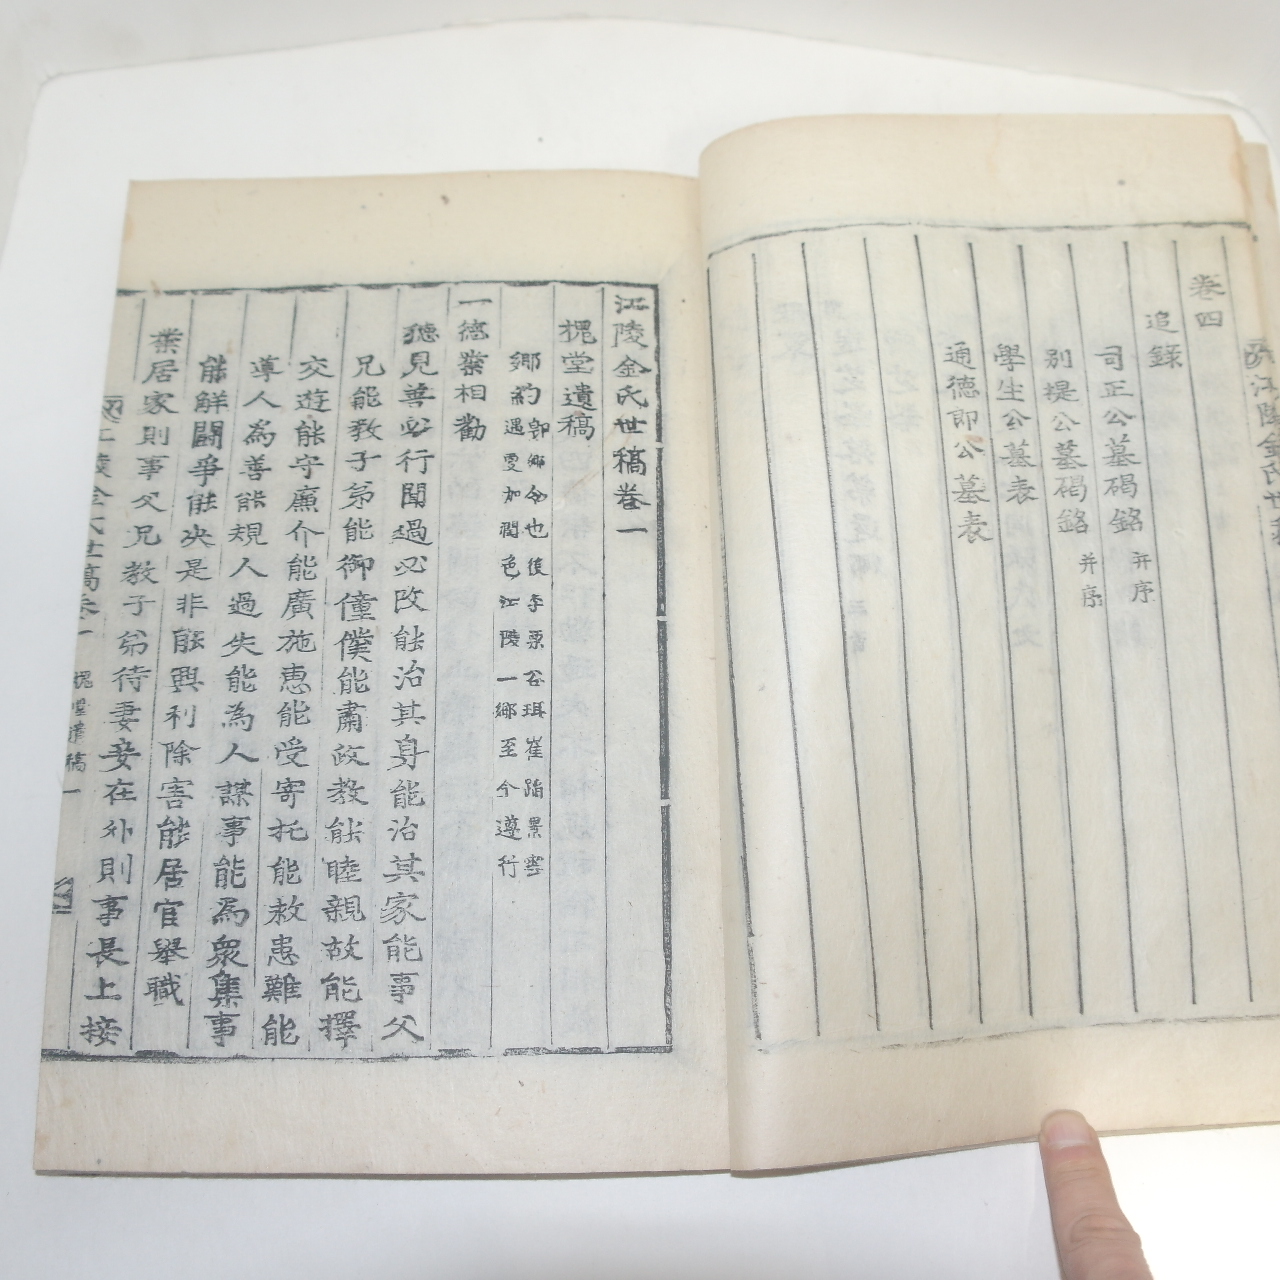 卷四
追錄
司正公墓碣銘 并序
別提公墓碣銘 并序
學生公墓表
通德郎公墓表
江陵金氏世稿卷一
槐堂遺稿
鄉約 即鄉令也後李栗谷珥崔蹈景雩
遇更加潤色江陵一鄉至今遵行
一德業相勸
德見善必行聞過必改能治其身能治其家能事父
兄能教子弟能御僮僕能肅政教能睦親故能擇
交遊能守廉介能廣施惠能受寄托能救患難能
導人為善能規人過失能為人謀事能為眾集事
能解鬪爭能決是非能興利除害能居官舉職
業居家則事父兄教子弟待妻妾在外則事長上接
江陵金氏世稿卷一 槐堂遺稿 一